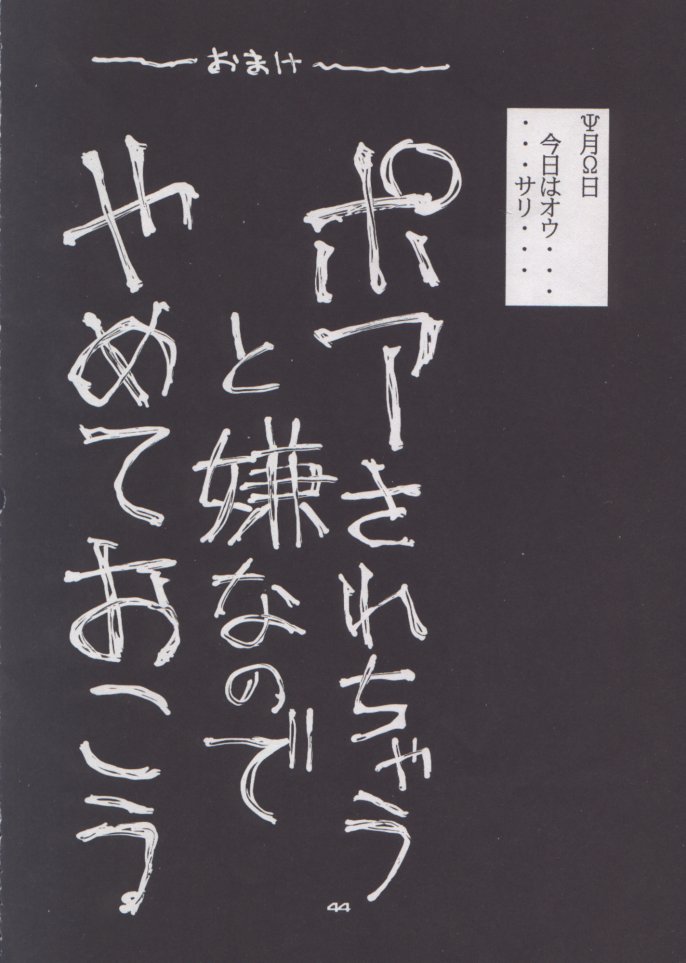 おまけ
Ψ月Ω日
今日はオウ・・・
・・・サリ・・・
ポアされちゃう
と嫌なので
やめておこう
44